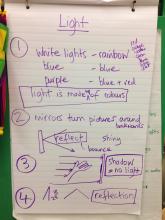 Light
1
white lights - rainbow
blue - blue
purple - blue + red
light is made of colours
2 mirrors turn pictures around
backwards
reflect shiny
bounce
3 shadow
= no light
4 reflection